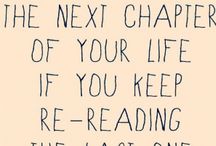 THE NEXT CHAPTER
OF YOUR LIFE
IF YOU KEEP
RE-READING
THE LAST ONE